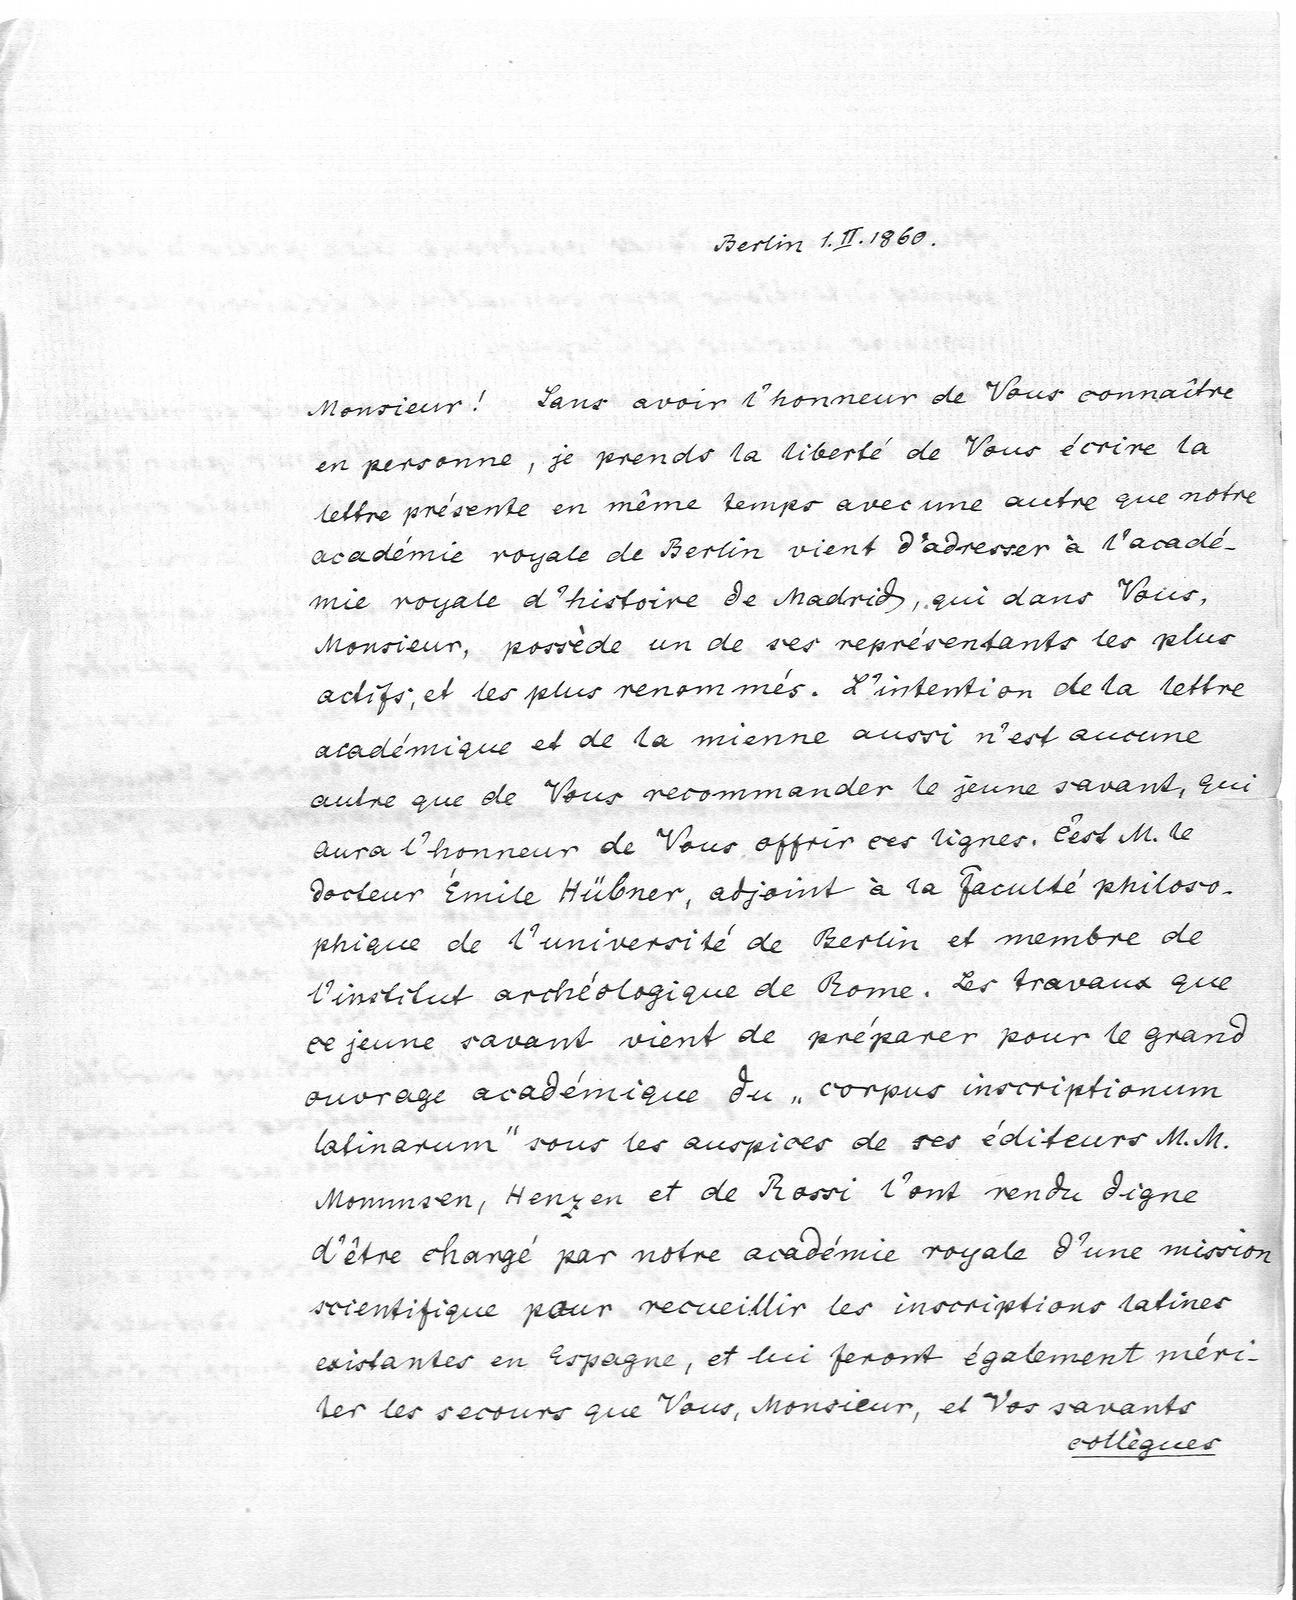 Berlin 1.II.1860.
Monsieur! Sans avoir l'honneur de Vous connaître
en personne, je prends la liberté de Vous écrire la
lettre présente en même temps avec une autre que notre
académie royale de Berlin vient d'adresser à l'acadé-
mie royale d'histoire de Madrid, qui dans Vous,
Monsieur, possède un de ses représentants les plus
actifs, et les plus renommés. L'intention de la lettre
académique et de la mienne aussi n'est aucune
autre que de Vous recommander le jeune savant, qui
aura l'honneur de Vous offrir ces lignes. C'est M. le
docteur Émile Hübner, adjoint à la faculté philoso-
phique de l'université de Berlin et membre de
l'institut archéologique de Rome. Les travaux que
ce jeune savant vient de préparer pour le grand
ouvrage académique du „corpus inscriptionum
latinarum" sous les auspices de ses éditeurs M.M.
Mommsen, Henzen et de Rossi l'ont rendu digne
d'être chargé par notre académie royale d'une mission
scientifique pour recueillir les inscriptions latines
existantes en Espagne, et lui feront également méri-
ter les secours que Vous, Monsieur, et Vos savants
collègues